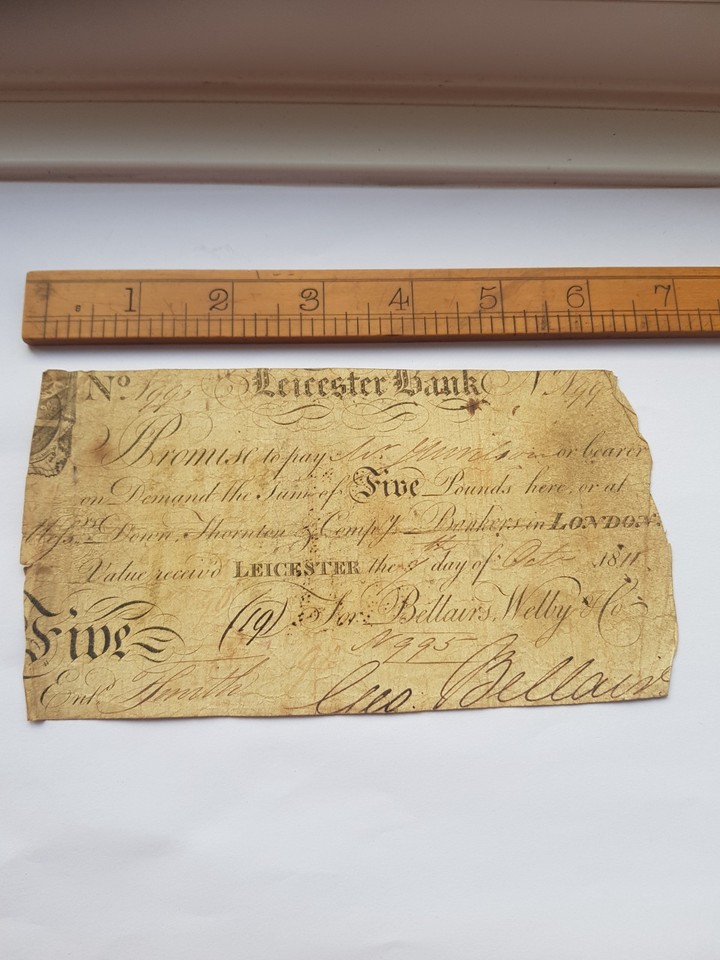 1 2 3 4 5 6 7
No Leicester Bank No
Promise to pay Mr or bearer
on Demand the Sum of Five Pounds here, or at
Messrs Down, Thornton & Compy Bankers in LONDON.
Value receiv'd LEICESTER the day of Octr 1811
(19) For Bellairs, Welby & Co
Five N995
Entd Smith Geo. Bellairs